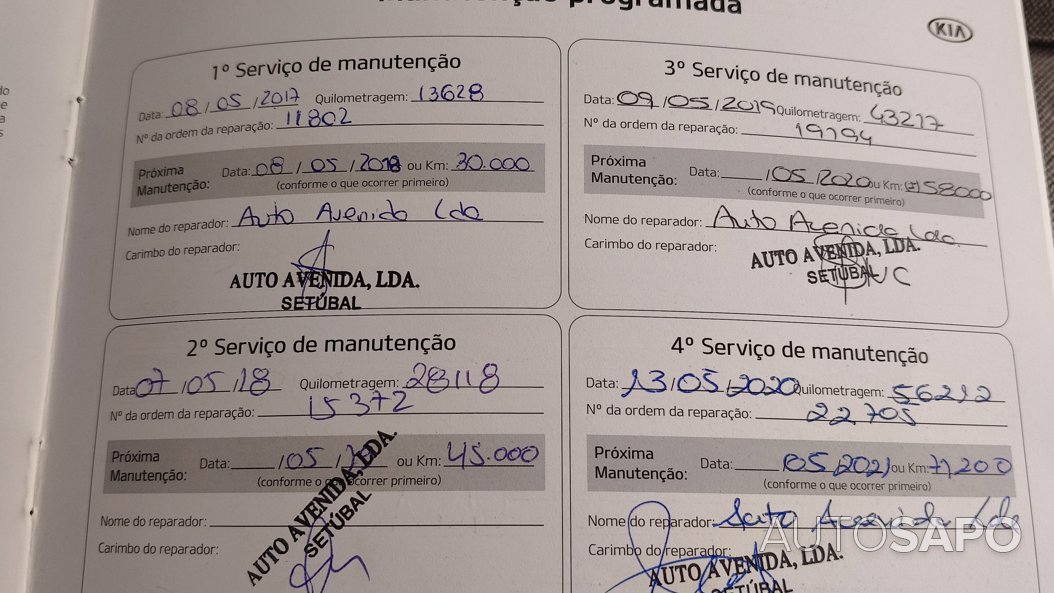 Manutenção programada
KIA
1º Serviço de manutenção
Data: 08/05/2017 Quilometragem: 13628
Nº da ordem da reparação: 11802
Próxima Manutenção: Data: 08/05/2018 ou Km: 30.000
(conforme o que ocorrer primeiro)
Nome do reparador: Auto Avenida Lda
Carimbo do reparador:
AUTO AVENIDA, LDA.
SETÚBAL
2º Serviço de manutenção
Data: 07/05/18 Quilometragem: 28118
Nº da ordem da reparação: 15372
Próxima Manutenção: Data: /05/ ou Km: 45.000
(conforme o que ocorrer primeiro)
Nome do reparador:
Carimbo do reparador:
AUTO AVENIDA, LDA.
SETÚBAL
3º Serviço de manutenção
Data: 09/05/2019 Quilometragem: 43217
Nº da ordem da reparação: 19194
Próxima Manutenção: Data: /05/2020 ou Km: 58000
(conforme o que ocorrer primeiro)
Nome do reparador: Auto Avenida Lda.
Carimbo do reparador:
AUTO AVENIDA, LDA.
SETÚBAL
4º Serviço de manutenção
Data: 13/05/2020 Quilometragem: 56212
Nº da ordem da reparação: 22705
Próxima Manutenção: Data: /05/2021 ou Km: 71200
(conforme o que ocorrer primeiro)
Nome do reparador: Auto Avenida Lda
Carimbo do reparador:
AUTO AVENIDA, LDA.
SETÚBAL
AUTOSAPO